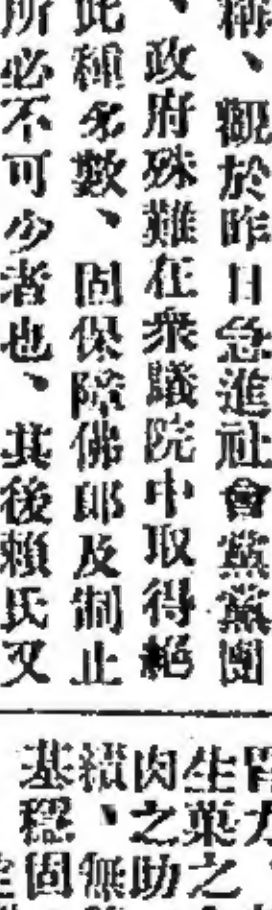 稱、觀於昨日急進社會黨黨團
、政府殊難在衆議院中取得絕
此種多數、固保障佛郎及制止
所必不可少者也、其後賴氏又
生葉之
肉之助
績、無
基穩固